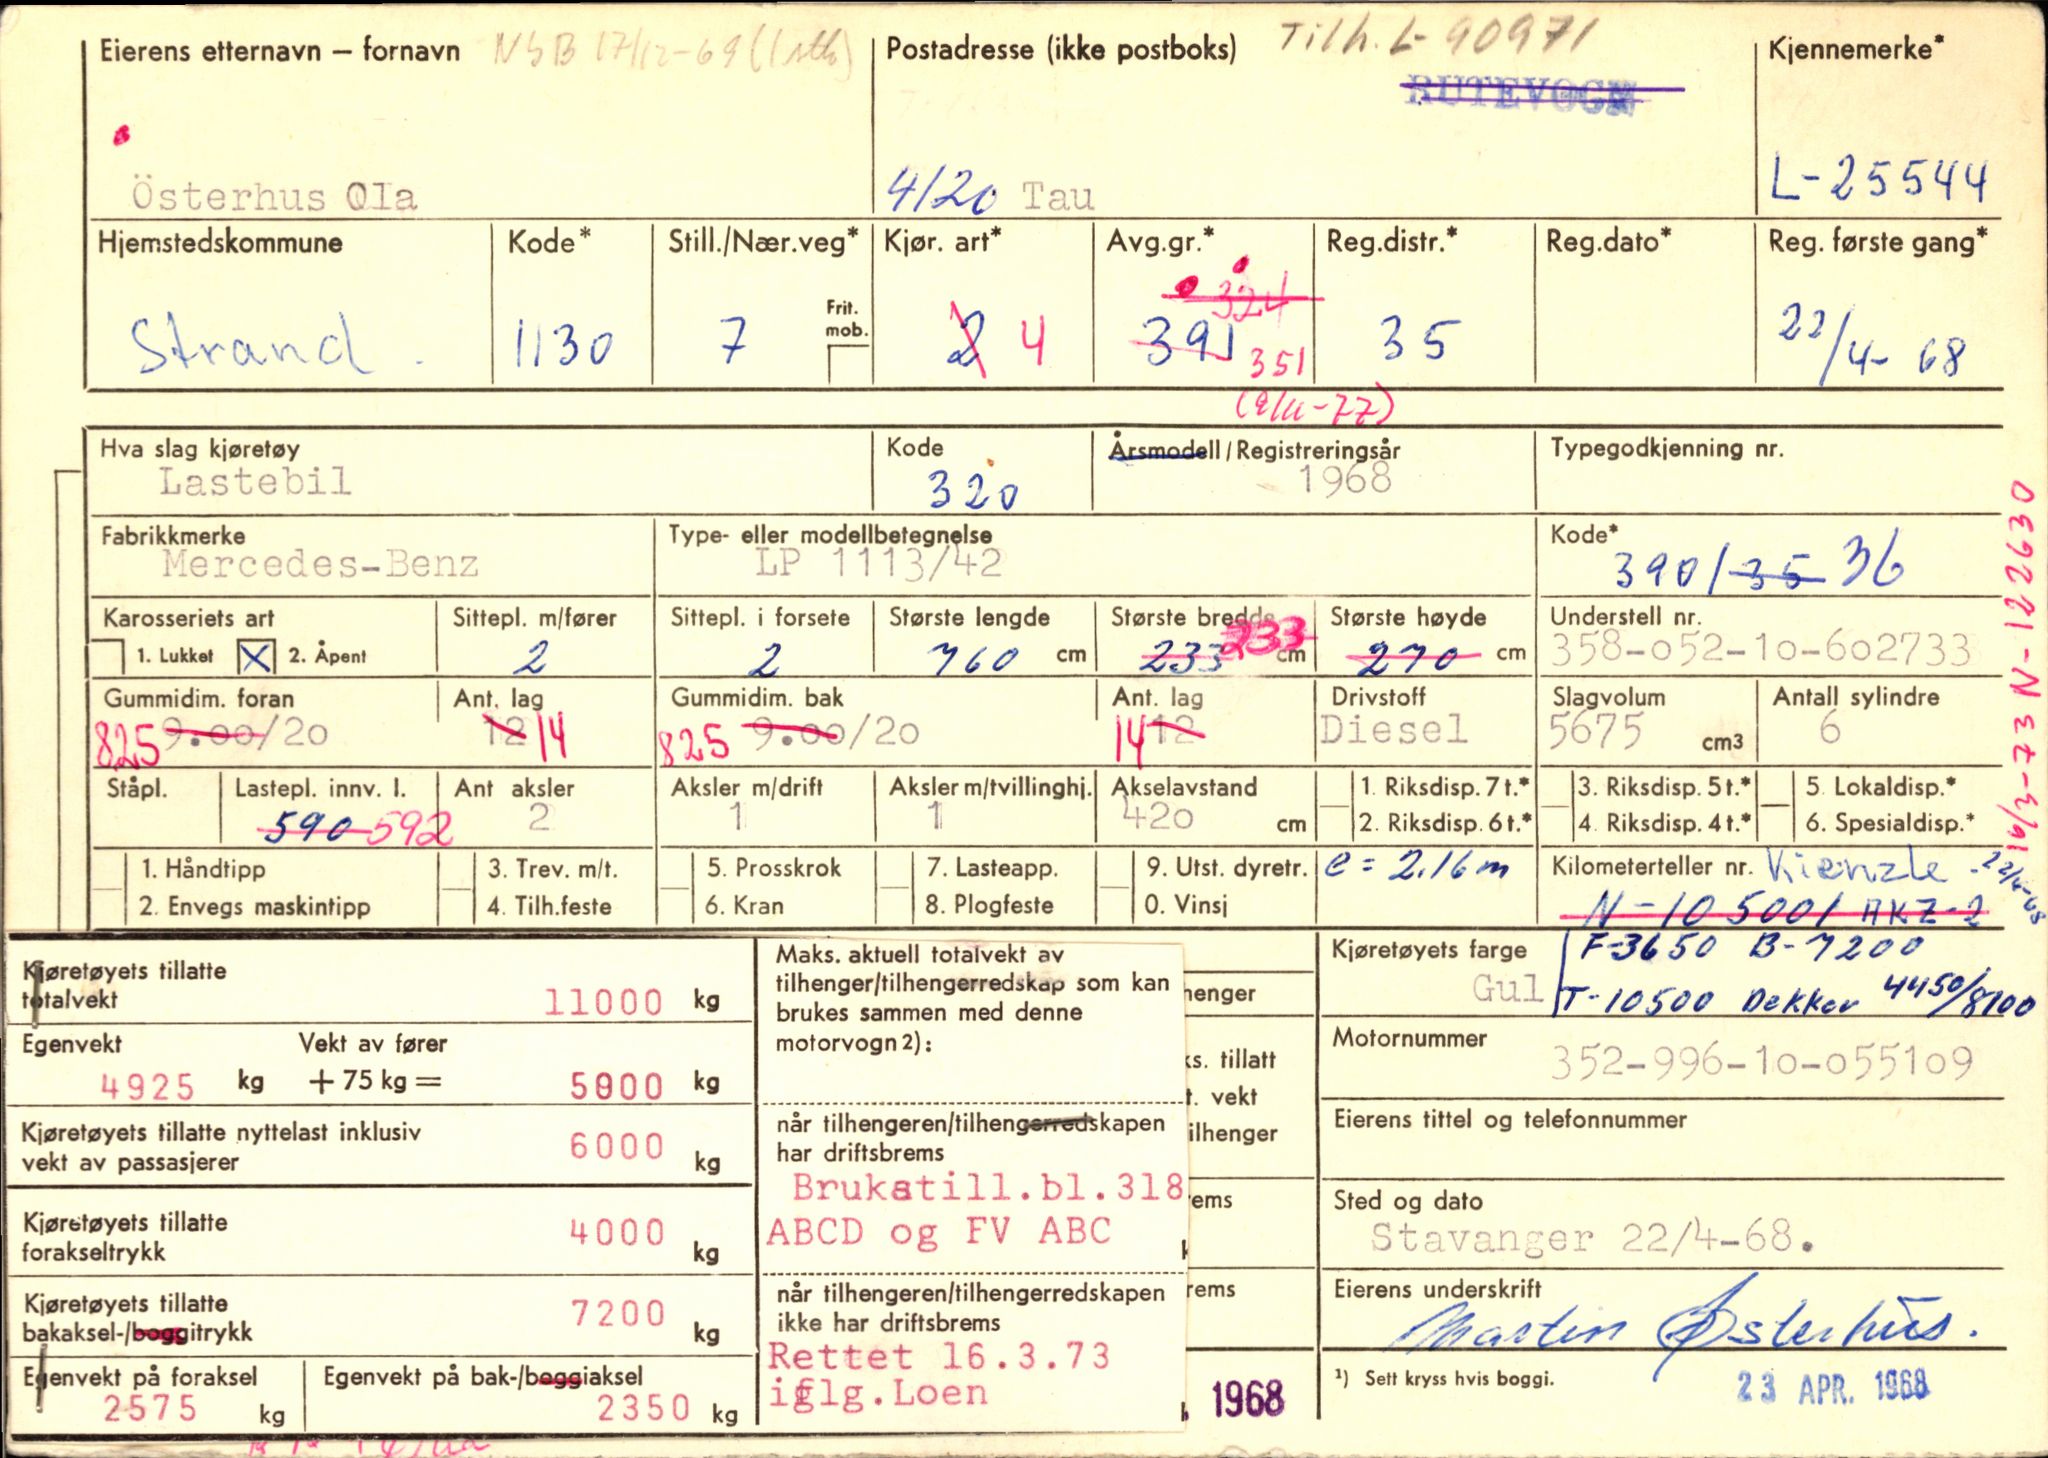 Eierens etternavn – fornavn NSB 17/12-69
Österhus Ola
Postadresse (ikke postboks) Tilh. L-90971
RUTEVOGN
4120 Tau
Kjennemerke*
L-25544
Hjemstedskommune
Strand.
Kode*
1130
Still./Nær.veg*
7
Frit. mob.
Kjør. art*
2 4
Avg.gr.*
324
391 351
(9/11-77)
Reg.distr.*
35
Reg.dato*
Reg. første gang*
22/4-68
Hva slag kjøretøy
Lastebil
Kode
320
Årsmodell/Registreringsår
1968
Typegodkjenning nr.
Fabrikkmerke
Mercedes-Benz
Type- eller modellbetegnelse
LP 1113/42
Kode*
390/35 36
Karosseriets art
1. Lukket X 2. Åpent
Sittepl. m/fører
2
Sittepl. i forsete
2
Største lengde
760 cm
Største bredde
233 233 cm
Største høyde
270 cm
Understell nr.
358-052-10-602733
Gummidim. foran
825 9.00/20
Ant. lag
12 14
Gummidim. bak
825 9.00/20
Ant. lag
14 12
Drivstoff
Diesel
Slagvolum
5675 cm3
Antall sylindre
6
Ståpl.
Lastepl. innv. l.
590 592
Ant aksler
2
Aksler m/drift
1
Aksler m/tvillinghj.
1
Akselavstand
420 cm
1. Riksdisp. 7 t.*
2. Riksdisp. 6 t.*
3. Riksdisp. 5 t.*
4. Riksdisp. 4 t.*
5. Lokaldisp.*
6. Spesialdisp.*
1. Håndtipp
2. Envegs maskintipp
3. Trev. m/t.
4. Tilh.feste
5. Prosskrok
6. Kran
7. Lasteapp.
8. Plogfeste
9. Utst. dyretr.
0. Vinsj
e = 2.16 m
Kilometerteller nr. Kienzle - 22/4-68
N-105001 AKZ-2
16/3-73 N-122630
Kjøretøyets tillatte
totalvekt 11000 kg
Egenvekt Vekt av fører
4925 kg + 75 kg = 5000 kg
Kjøretøyets tillatte nyttelast inklusiv
vekt av passasjerer 6000 kg
Kjøretøyets tillatte
forakseltrykk 4000 kg
Kjøretøyets tillatte
bakaksel-/boggitrykk 7200 kg
Egenvekt på foraksel
2575 kg
Egenvekt på bak-/boggiaksel
2350 kg
Maks. aktuell totalvekt av
tilhenger/tilhengerredskap som kan
brukes sammen med denne
motorvogn 2):
når tilhengeren/tilhengerredskapen
har driftsbrems
Brukstill.bl.318
ABCD og FV ABC
når tilhengeren/tilhengerredskapen
ikke har driftsbrems
Rettet 16.3.73
iflg.Loen
henger
ks. tillatt
t. vekt
ilhenger
rems
rems
1968
Kjøretøyets farge
Gul
F-3650 B-7200
T-10500 Dekker 4450/8100
Motornummer
352-996-10-055109
Eierens tittel og telefonnummer
Sted og dato
Stavanger 22/4-68.
Eierens underskrift
Martin Østerhus.
¹) Sett kryss hvis boggi.
23 APR. 1968